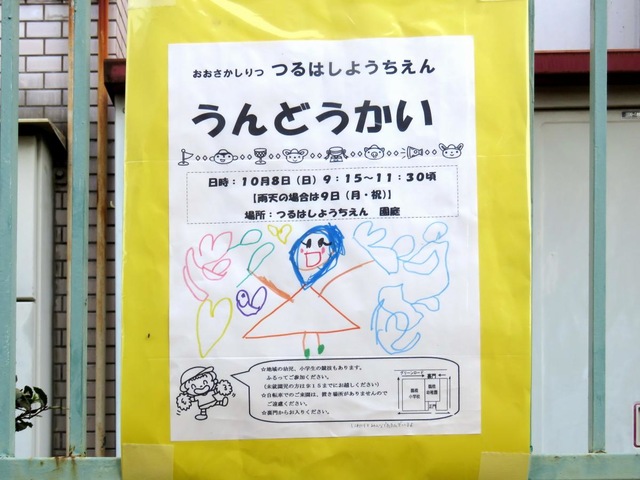 おおさかしりつ つるはしようちえん
うんどうかい
日時：10月8日（日）9：15～11：30頃
【雨天の場合は9日（月・祝）】
場所：つるはしようちえん 園庭
☆地域の幼児、小学生の競技もあります。
ふるってご参加ください。
（未就園児の方は9:15までにお越しください）
☆自転車でのご来園は、置き場所がありませんので
ご遠慮ください。
☆裏門からお入りください。
グリーンロード
裏門
鶴橋
小学校
鶴橋
幼稚園
正門